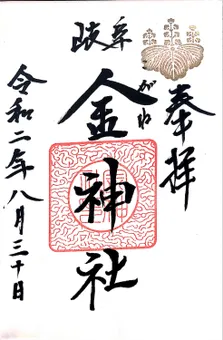 奉拝
岐阜
金神社
がね
令和二年八月三十日